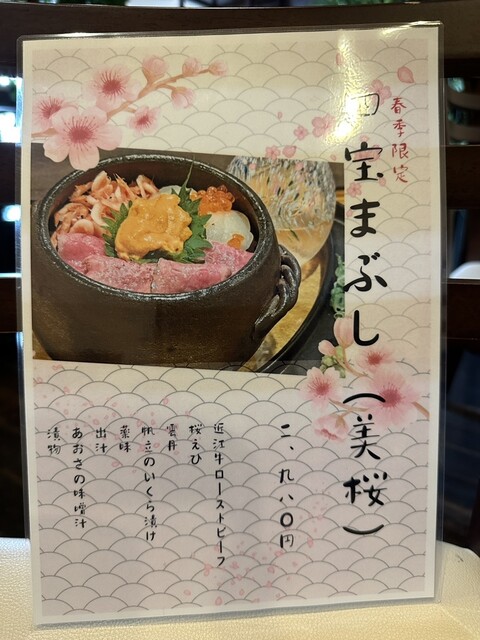 春季限定
四宝まぶし（美桜）
二、九八〇円
近江牛ローストビーフ
桜えび
雲丹
帆立のいくら漬け
薬味
出汁
あおさの味噌汁
漬物